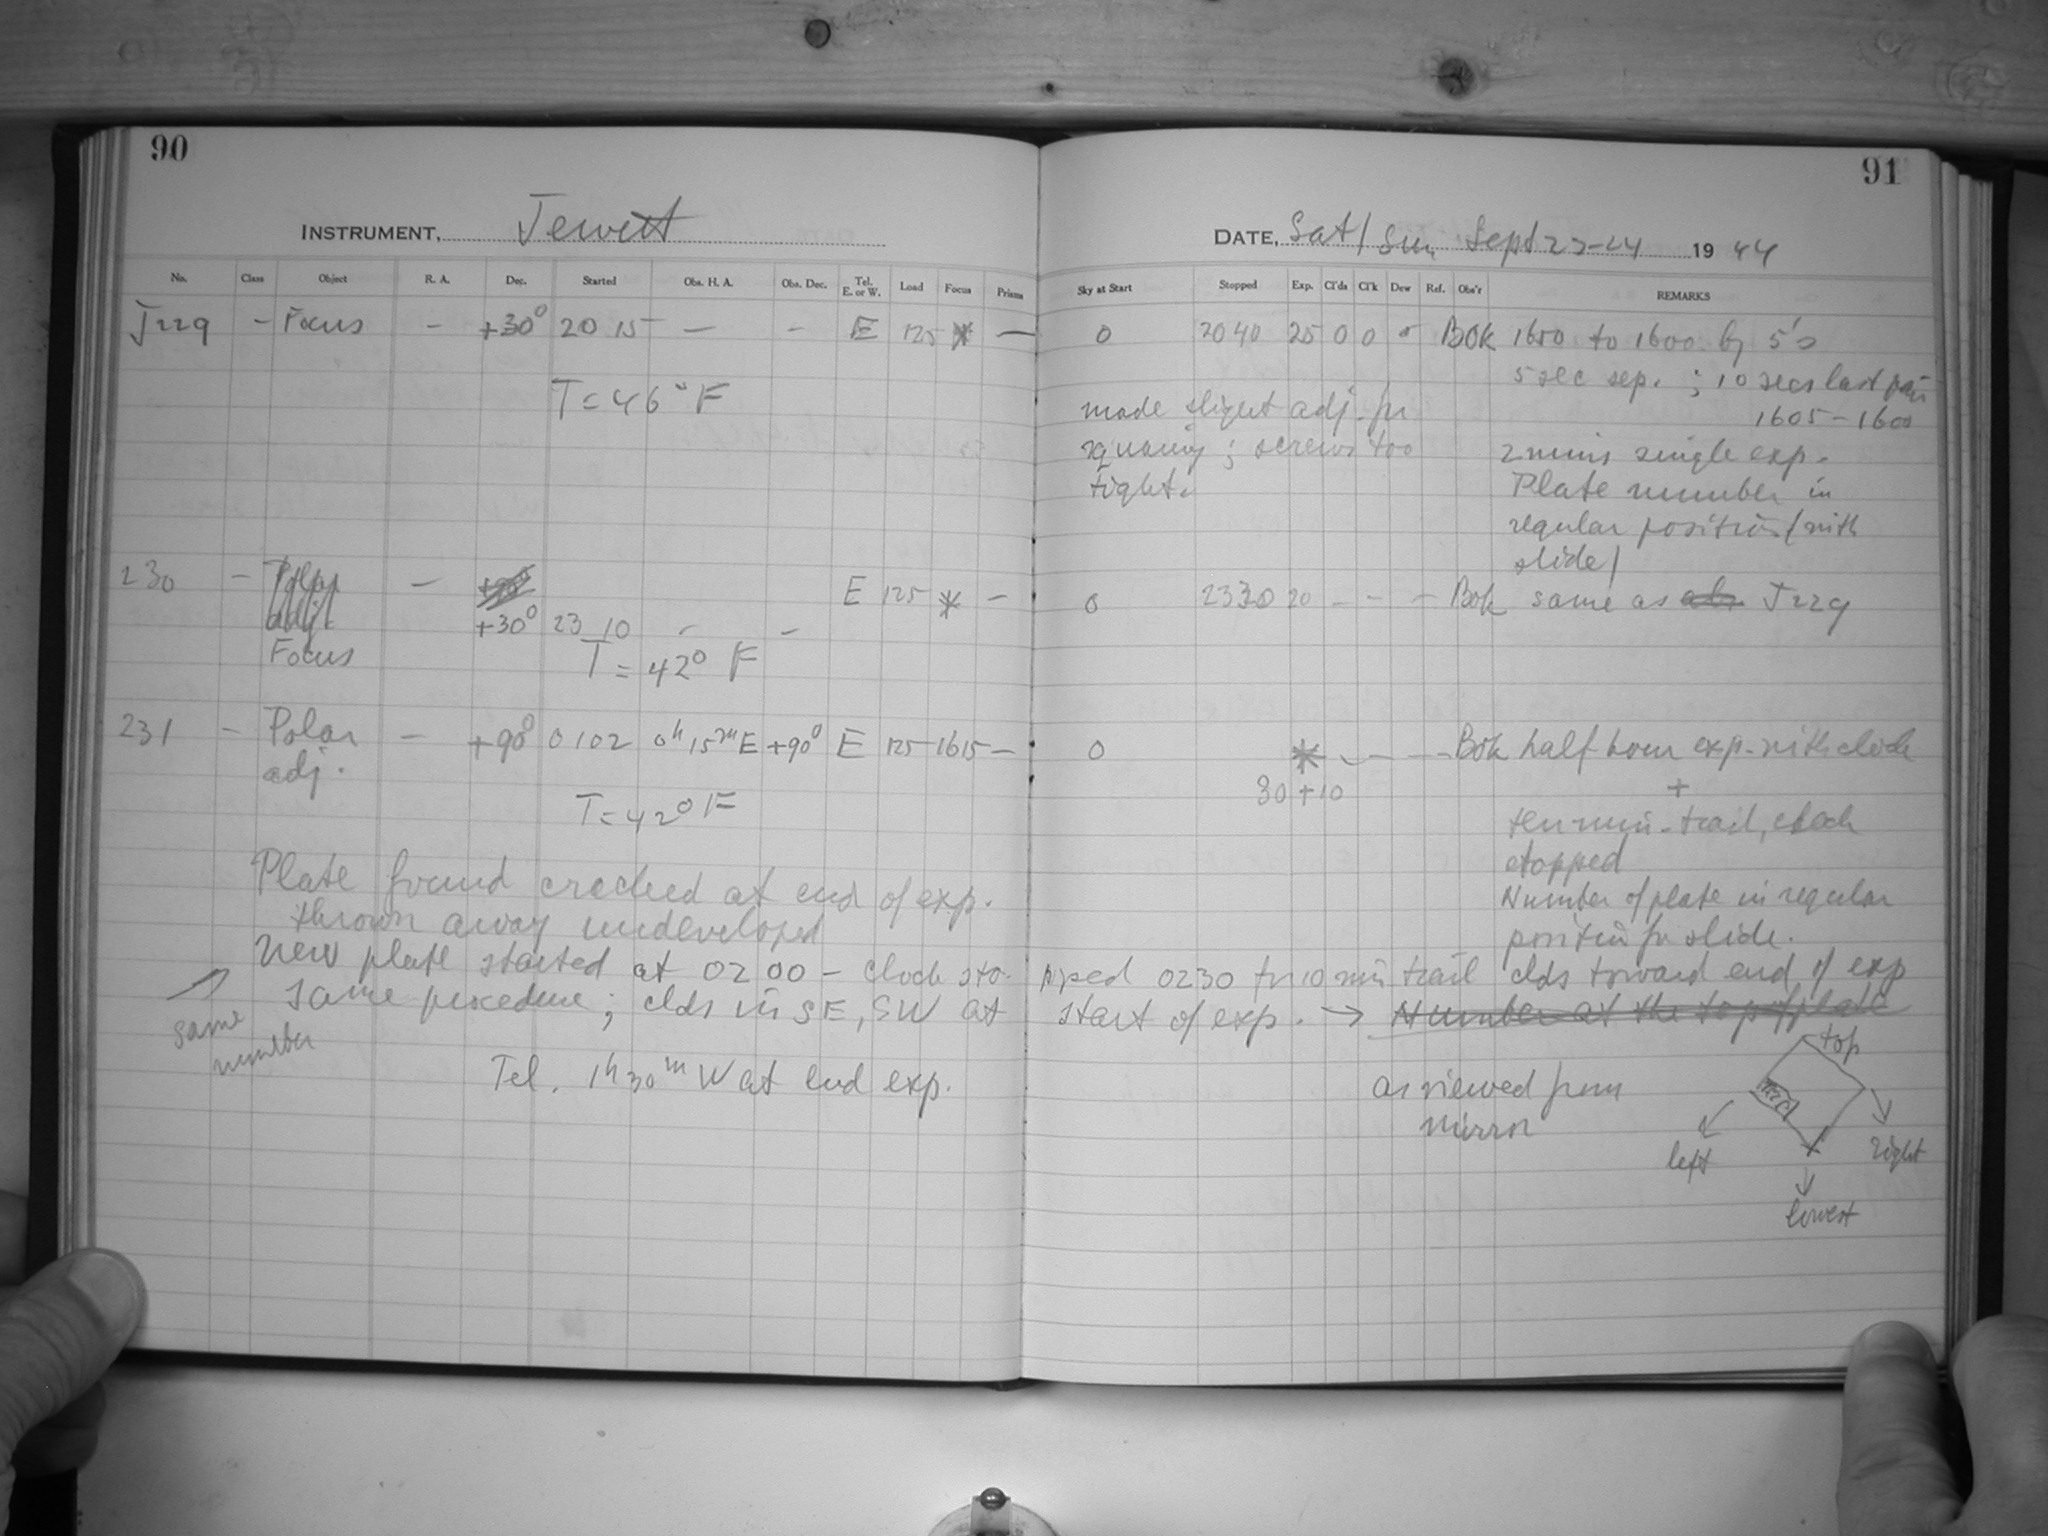 90
91
INSTRUMENT, Jewett
DATE, Sat/Sun Sept 23-24 1944
No. Class Object R. A. Dec. Started Obs. H. A. Obs. Dec. Tel. E. or W. Load Focus Prisms Sky at Start Stopped Exp. Cl'ds Cl'k Dew Ref. Obs'r REMARKS
J229 - Focus - +30° 20 15 — - E 125 * — 0 2040 25 0 0 0 BOK 1650 to 1600 by 5's
5 sec sep. ; 10 secs last pair
T = 46° F
made slight adj. for
1605 - 1600
squaring ; screws too
2 mins single exp.
tight.
Plate number in
regular position (with
slide)
230 - Polar adj. - +90° E 125 * - 0 2330 20 - - - Bok same as J229
+30° 23 10 - -
Focus
T = 42° F
231 - Polar - +90° 0102 0h 15m E +90° E 125 1615 - 0 * - - - Bok half hour exp. with clock
adj.
30 + 10
+
T = 42° F
ten min. trail, clock
stopped
Plate found cracked at end of exp.
Number of plate in regular
thrown away undeveloped
position for slide.
New plate started at 0200 - clock stopped 0230 for 10 min trail clds toward end of exp
same procedure ; clds in SE, SW at start of exp. → Number at the top of plate
same
number
Tel. 1h 30m W at end exp.
as viewed from
mirror
top
left
right
lowest